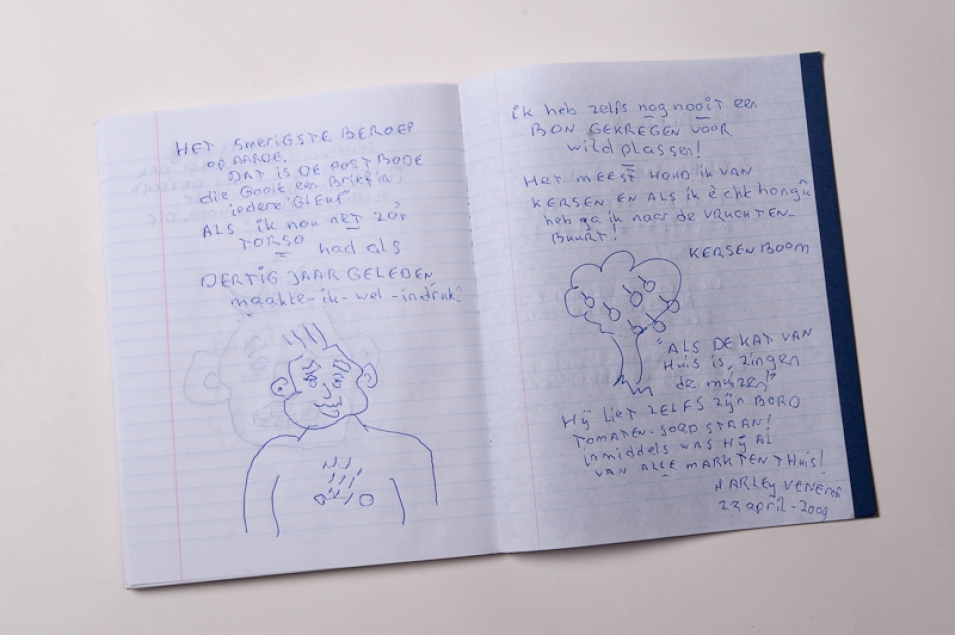 HET SMERIGSTE BEROEP
OP AARDE.
DAT IS DE POSTBODE
die Gooit een Brief in
iedere "GLEUF"
ALS ik nou net zo'n
TORSO had als
DERTIG JAAR GELEDEN
maakte-ik-wel-indruk?
ik heb zelfs nog nooit een
BON GEKREGEN VOOR
wildplassen!
HET MEEST HOUD IK VAN
KERSEN EN ALS ik ècht
heb ga ik naar de VRUCHTEN-
BUURT!
KERSENBOOM
"ALS DE KAT VAN
Huis is, zingen
de muizen"?
Hij LIET ZELFS ZIJN BORD
TOMATEN-SOEP STAAN!
inmiddels WAS Hij AL
VAN ALLE MARKTEN THuis!
HARLEY VENEMA
23 april-2009